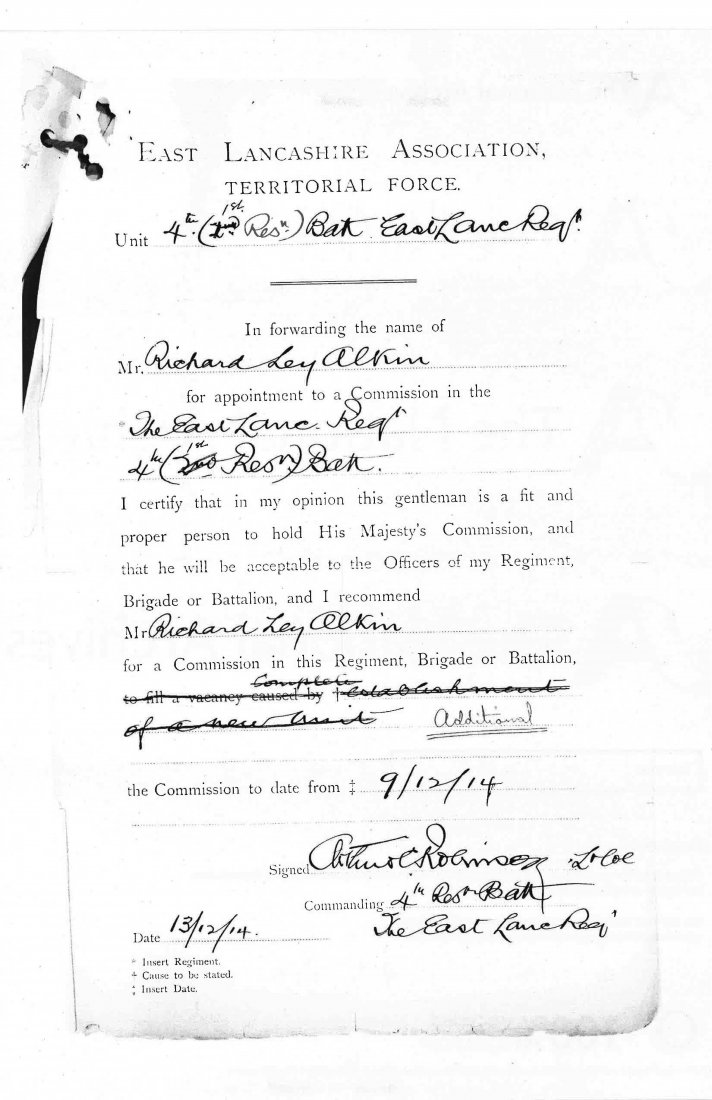 EAST LANCASHIRE ASSOCIATION,
TERRITORIAL FORCE.
1st
Unit 4th (2nd Resn.) Batt East Lanc Regt.
In forwarding the name of
Mr. Richard Ley Alkin
for appointment to a Commission in the
* The East Lanc. Regt
1st
4th (2nd Resn) Batt.
I certify that in my opinion this gentleman is a fit and
proper person to hold His Majesty's Commission, and
that he will be acceptable to the Officers of my Regiment,
Brigade or Battalion, and I recommend
Mr Richard Ley Alkin
for a Commission in this Regiment, Brigade or Battalion,
Complete
to fill a vacancy caused by † establishment
of a new Unit Additional
the Commission to date from ‡ 9/12/14
Signed Arthur C Robinson Lt Col
Commanding 4th Resn Batt
Date 13/12/14. The East Lanc Regt
* Insert Regiment.
† Cause to be stated.
‡ Insert Date.